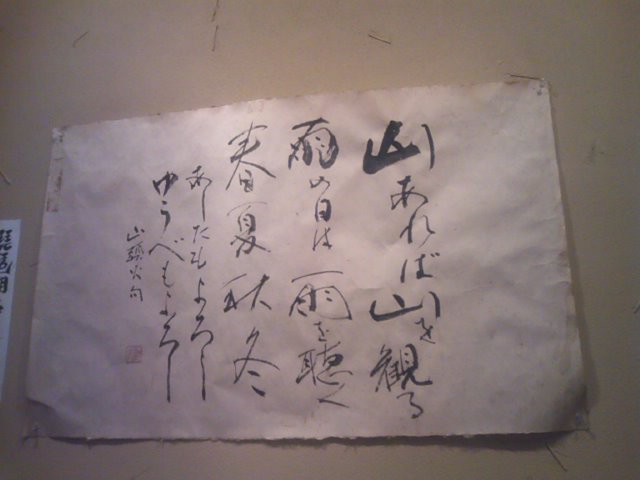 山あれば山を観る
雨の日は雨を聴く
春夏秋冬
あしたもよろし
ゆうべもよろし
山頭火句
琵琶湖